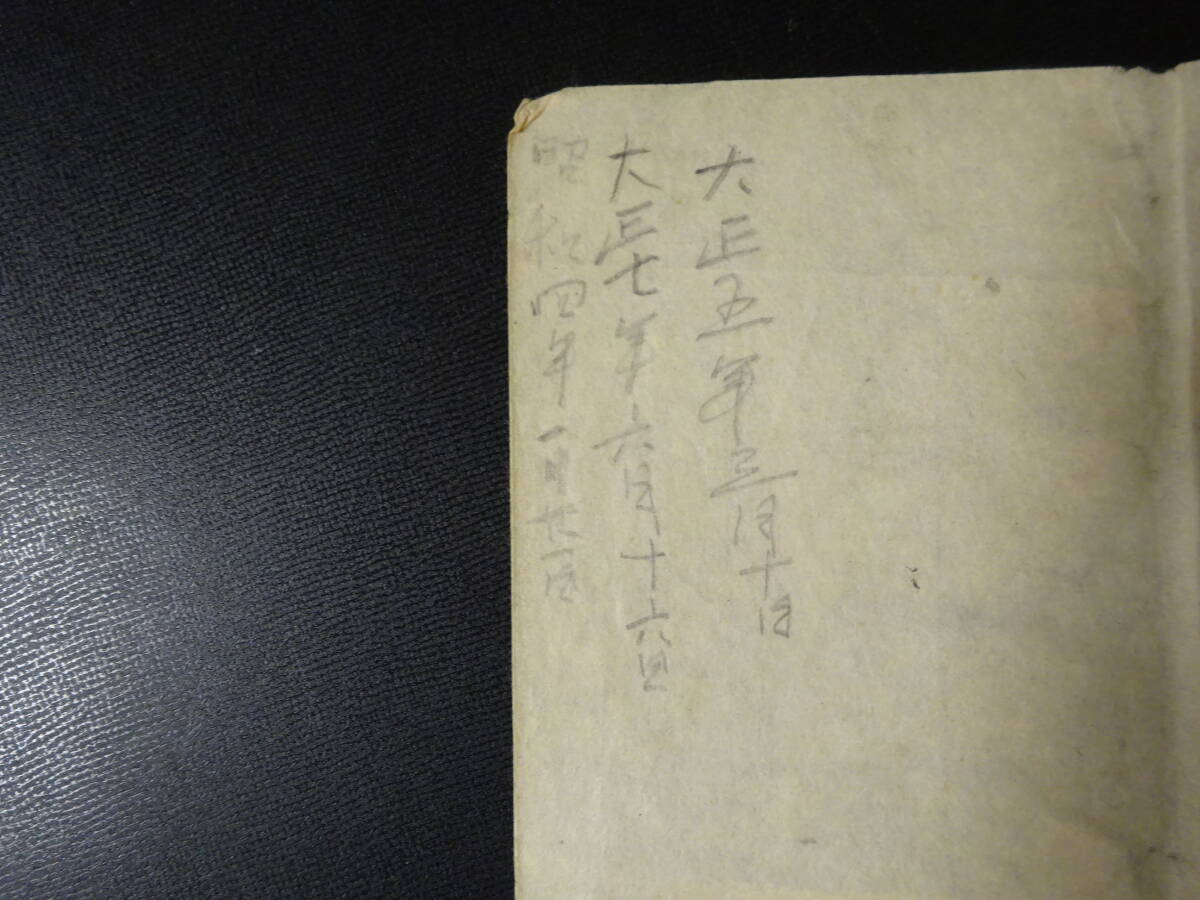 大正五年三月十日
大正七年六月十六日
昭和四年一月廿一日